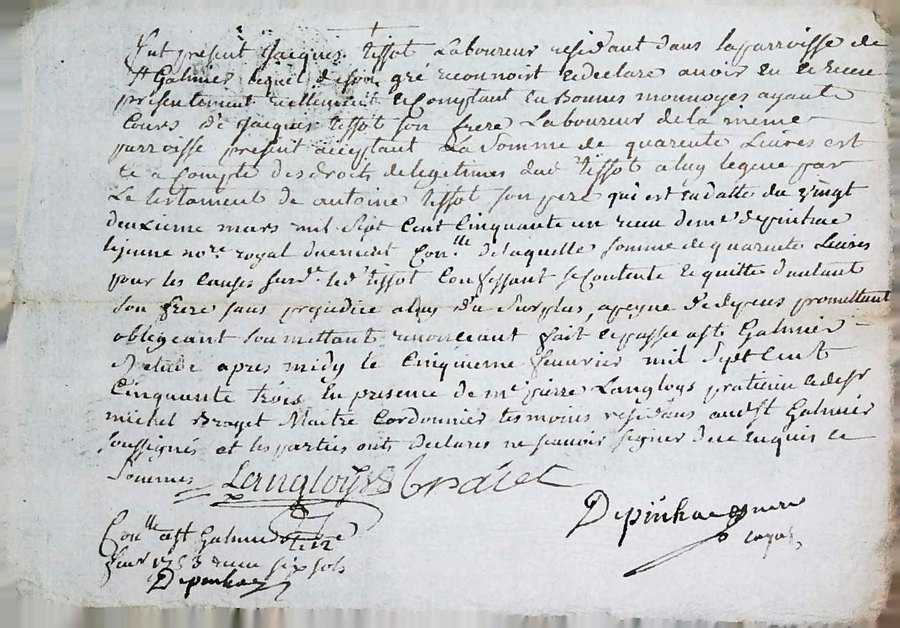 fut présent Jacques tissot Laboureur residant dans la parroisse de
St Galmier lequel de son gré reconnoit et declare avoir eu et receu
présentement reellement et Comptant en Bonnes monnoyes ayants
Cours de Jacques tissot son frere Laboureur de la meme
parroisse présent acceptant La Somme de quarente Livres est
ce a Compte des droits de legitimes dud tissot a luy legue par
Le testament de antoine tissot son pere qui est en datte du vingt
deuxieme mars mil sept Cent Cinquante un receu de me depinhac
le jeune nore royal duement Conlle de laquelle somme de quarente Livres
pour les causes susd. led tissot Confessant se Contente et quitte d'autant
son frere sans prejudice a luy du Surplus, a peyne de depens promettant
obligeant soumettant renonceant fait et passé a St Galmier
Etude apres midy le Cinquieme fevrier mil Sept Cent
Cinquante trois En presence de me pierre Langloys praticien et de sr
michel Brozet Maitre Cordonnier tesmoins residans aud St Galmier
soussignés et les parties ont declares ne scavoir signer de ce enquis et
Sommes Langloys
Depinhac
royal
Conlle a St Galmier le 12
fevr 1753 receu six sols
Depinhac